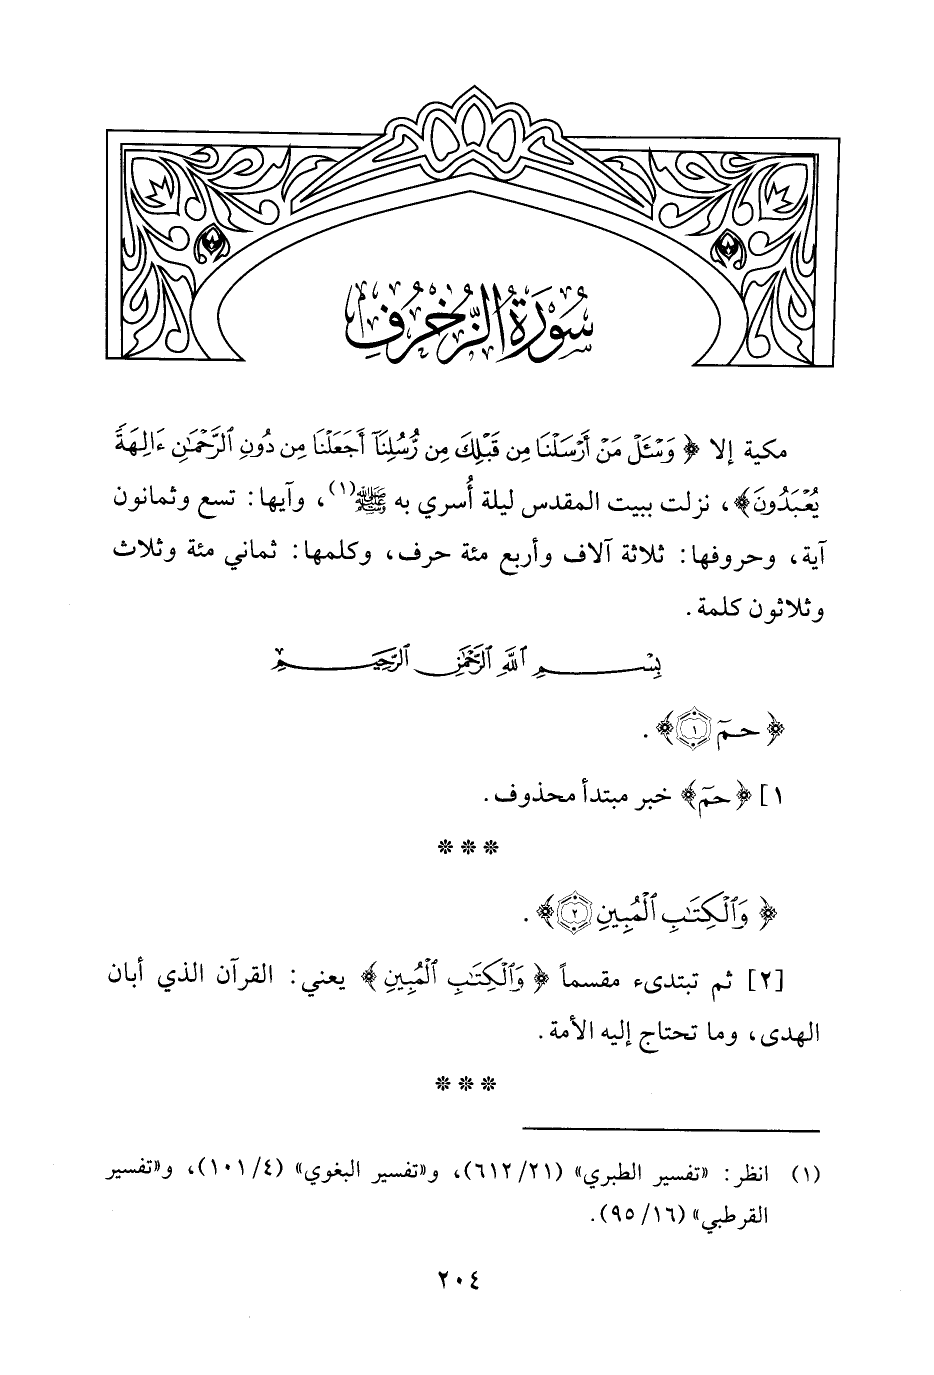 سُورَةُ الزُّخْرُفِ
مكية إلا ﴿وَسْـَٔلْ مَنْ أَرْسَلْنَا مِن قَبْلِكَ مِن رُّسُلِنَآ أَجَعَلْنَا مِن دُونِ ٱلرَّحْمَـٰنِ ءَالِهَةً
يُعْبَدُونَ﴾، نزلت ببيت المقدس ليلة أُسري به ﷺ(١)، وآيها: تسع وثمانون
آية، وحروفها: ثلاثة آلاف وأربع مئة حرف، وكلمها: ثماني مئة وثلاث
وثلاثون كلمة.
بِسْمِ ٱللَّهِ ٱلرَّحْمَـٰنِ ٱلرَّحِيمِ
﴿حمٓ ١﴾.
١] ﴿حمٓ﴾ خبر مبتدأ محذوف.
***
﴿وَٱلْكِتَـٰبِ ٱلْمُبِينِ ٢﴾.
[٢] ثم تبتدىء مقسماً ﴿وَٱلْكِتَـٰبِ ٱلْمُبِينِ﴾ يعني: القرآن الذي أبان
الهدى، وما تحتاج إليه الأمة.
***
(١) انظر: «تفسير الطبري» (٢١/ ٦١٢)، و«تفسير البغوي» (٤/ ١٠١)، و«تفسير
القرطبي» (١٦/ ٩٥).
٢٠٤